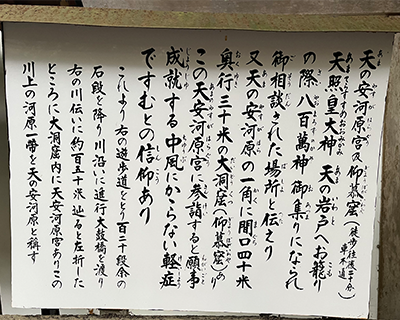 天の安河原宮及仰慕窟（徒歩往復三十分 車不通）
天照皇大神　天の岩戸へお籠り
の際八百萬神御集りになられ
御相談された場所と伝えり
又天の安河原の一角に間口四十米
奥行三十米の大洞窟（仰慕窟）あり
この天安河原宮に参詣すると願事
成就する中風にかゝらない軽症
ですむとの信仰あり
これより右の遊歩道をとり百二十段余の
石段を降り川沿いに進行大鼓橋を渡り
右の川伝いに約百五十米辿ると左折した
ところに大洞窟内に天安河原宮ありこの
川上の河原一帯を天の安河原と称す